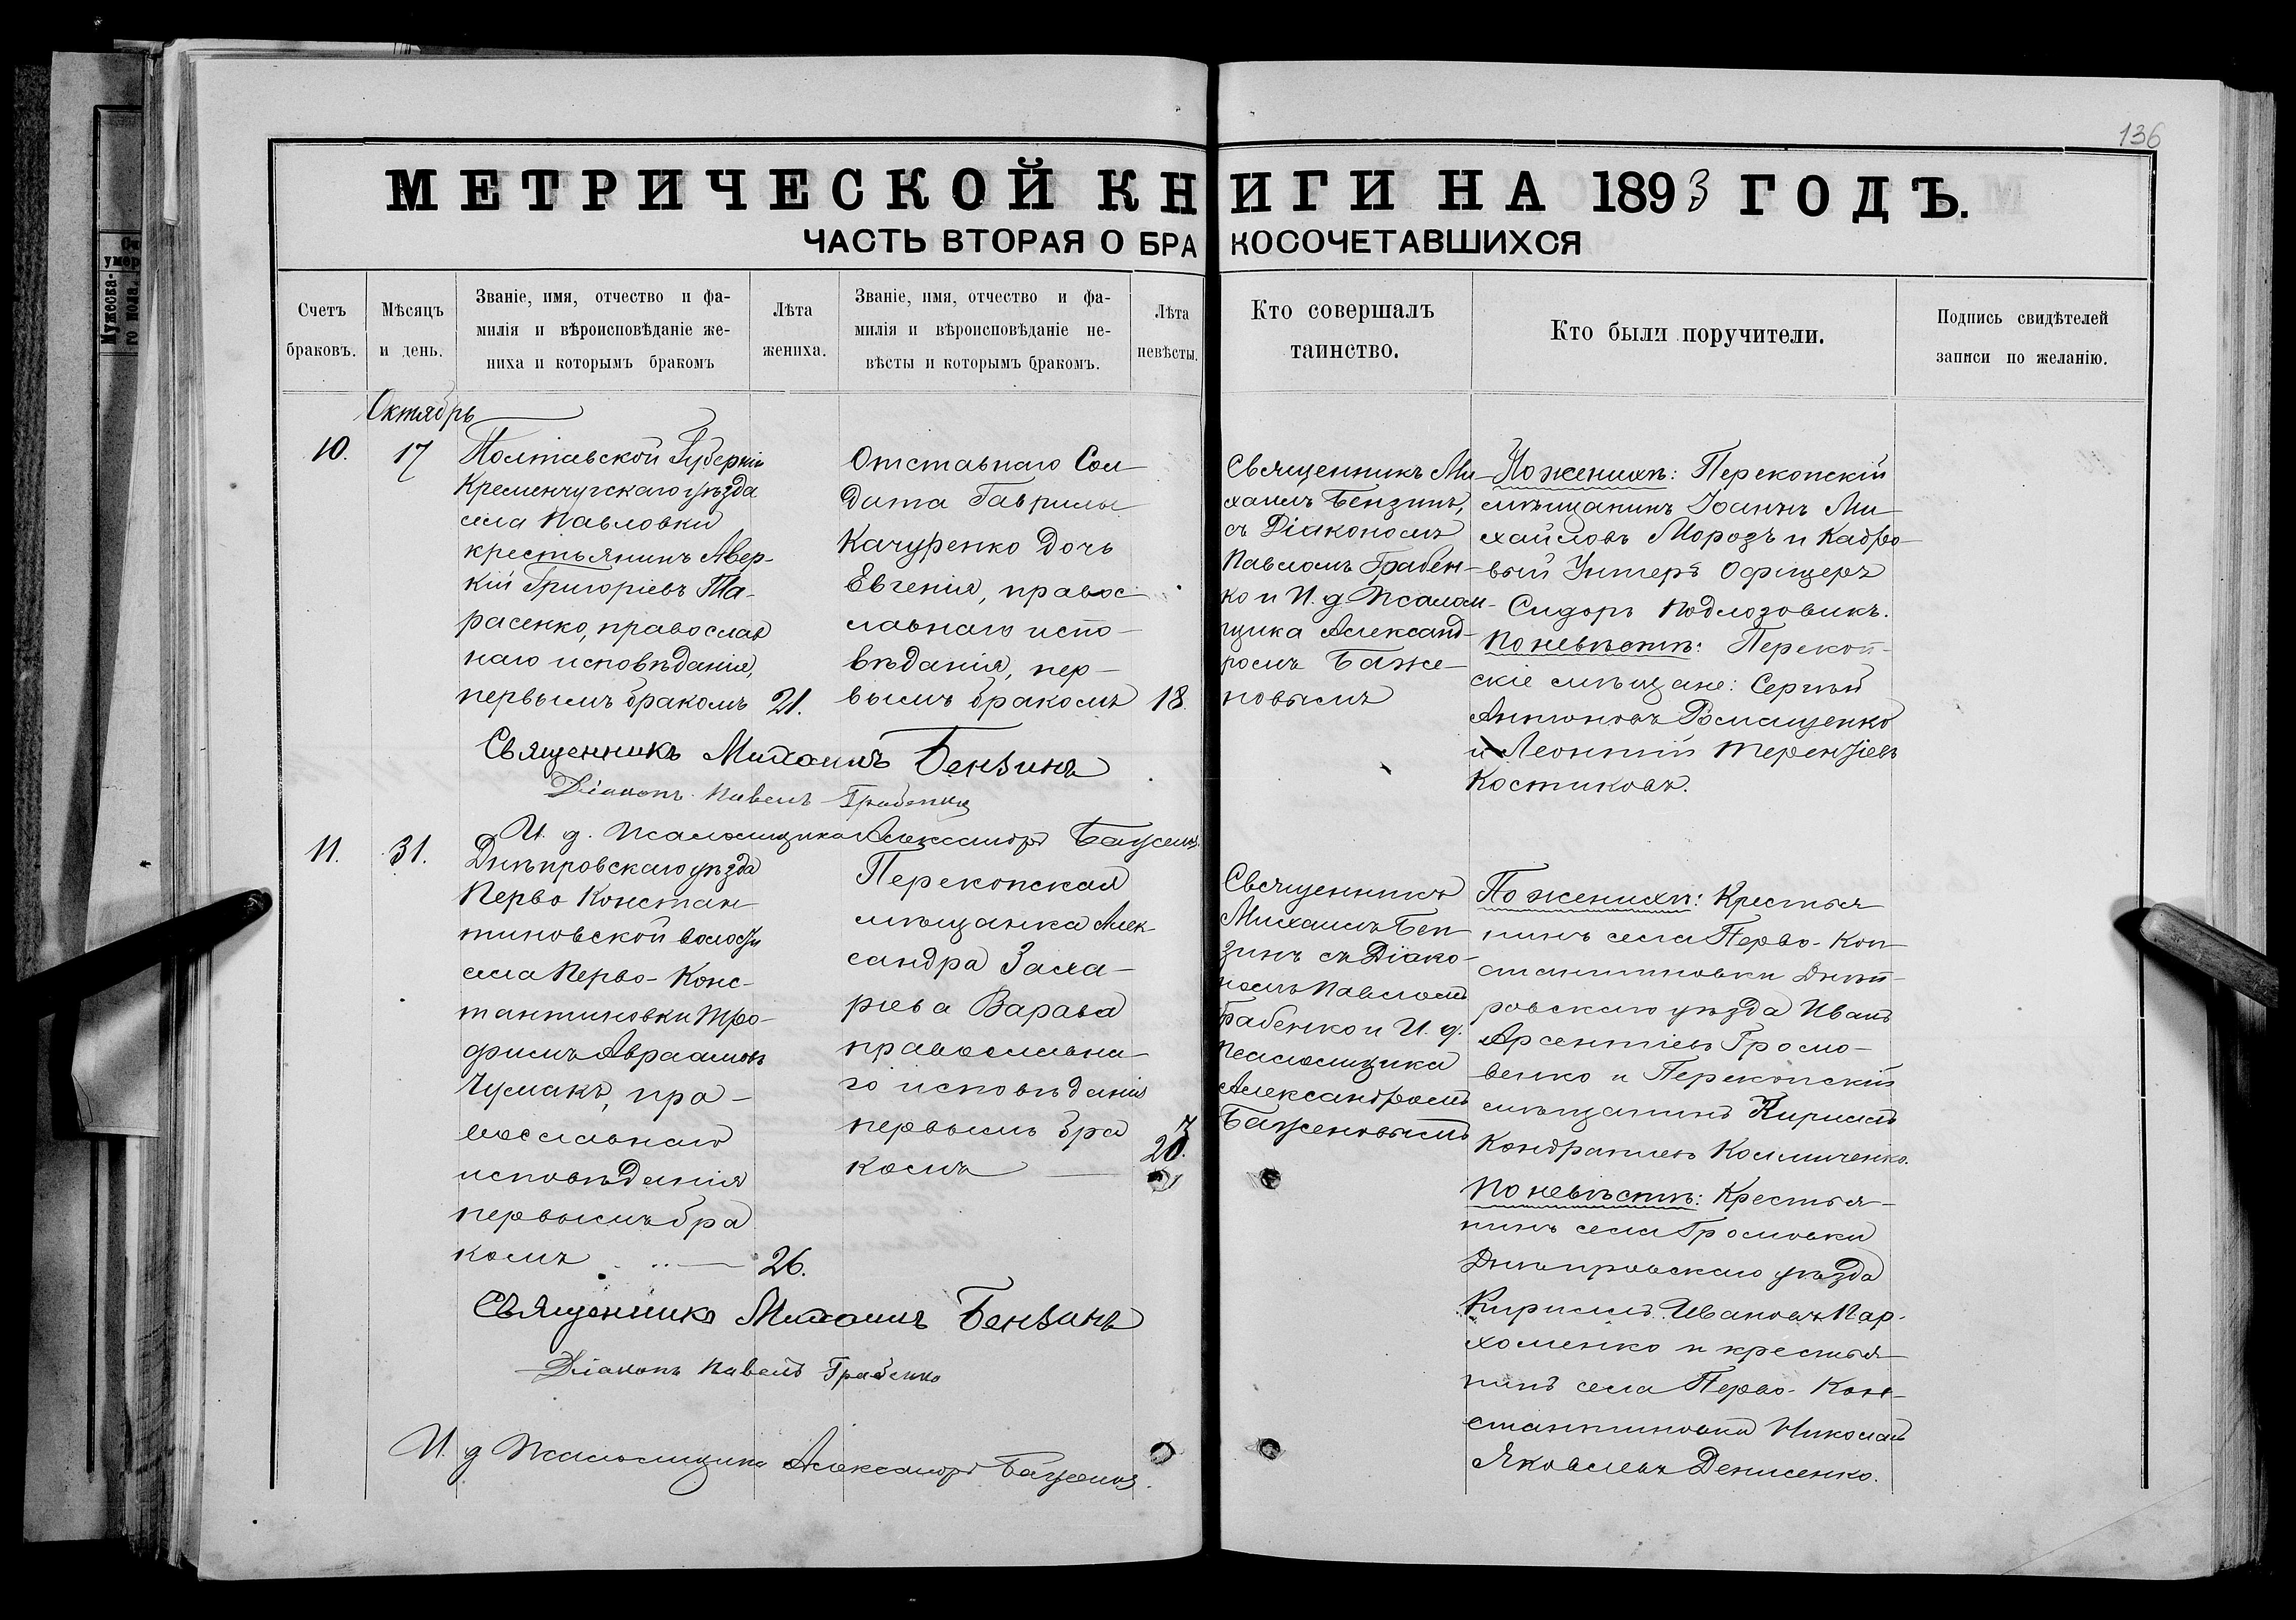 136
МЕТРИЧЕСКОЙ КНИГИ НА 1893 ГОДЪ.
ЧАСТЬ ВТОРАЯ О БРАКОСОЧЕТАВШИХСЯ
Счетъ
браковъ.
Мѣсяцъ
и день.
Званіе, имя, отчество и фа-
милія и вѣроисповѣданіе же-
ниха и которымъ бракомъ
Лѣта
жениха.
Званіе, имя, отчество и фа-
милія и вѣроисповѣданіе не-
вѣсты и которымъ бракомъ.
Лѣта
невѣсты.
Кто совершалъ
таинство.
Кто были поручители.
Подпись свидѣтелей
записи по желанію.
Октябрь
10.
17
Полтавской Губерніи
Кременчугскаго уѣзда
села Павловки
крестьянинъ Авер-
кій Григоріевъ Та-
расенко, православ
наго исповѣданія,
первымъ бракомъ
21.
Отставнаго Сол
дата Гаврилы
Качуренко дочь
Евгенія, правос
лавнаго испо-
вѣданія, пер-
вымъ бракомъ
18.
Священникъ Ми-
хаилъ Бензинъ,
съ Діакономъ
Павломъ Грабен-
ко и И. д. Псалом-
щика Александ-
ромъ Баже-
новымъ
По женихѣ: Перекопскій
мѣщанинъ Іоаннъ Ми-
хайловъ Морозъ и Кадро-
вый Унтеръ Офицеръ
Сидоръ Подлозовикъ.
По невѣстѣ: Перекоп-
скіе мѣщане: Сергѣй
Антоновъ Ромащенко
и Леонтій Терентіевъ
Костиковъ.
Священникъ Михаилъ Бензинъ
Діаконъ Павелъ Грабенко
И. д. Псаломщика Александръ Баженовъ
11.
31.
Днѣпровскаго уѣзда
Перво Констан
тиновской волости
села Перво-Конс-
тантиновки Тро-
фимъ Авраамовъ
Чумакъ, пра-
вославнаго
исповѣданія
первымъ бра
комъ
26.
Перекопская
мѣщанка Алек
сандра Заха-
рієва Варава
православна-
го исповѣданія
первымъ бра
комъ
20.
Священникъ
Михаилъ Бен
зинъ съ Діако-
номъ Павломъ
Грабенко и И. д.
Псаломщика
Александромъ
Баженовымъ
По женихѣ: Крестья
нинъ села Перво-Кон-
стантиновки Днѣп-
ровскаго уѣзда Иванъ
Арсентіевъ Громо-
венко и Перекопскій
мѣщанинъ Кириллъ
Кондратіевъ
По невѣстѣ: Крестья-
нинъ села Громовки
Днѣпровскаго уѣзда
Кириллъ Ивановъ Пар-
хоменко и крестья-
нинъ села Перво-Кон-
стантиновки Николай
Яковлевъ Денисенко.
Священникъ Михаилъ Бензинъ
Діаконъ Павелъ Грабенко
И. д Псаломщика Александръ Баженовъ.